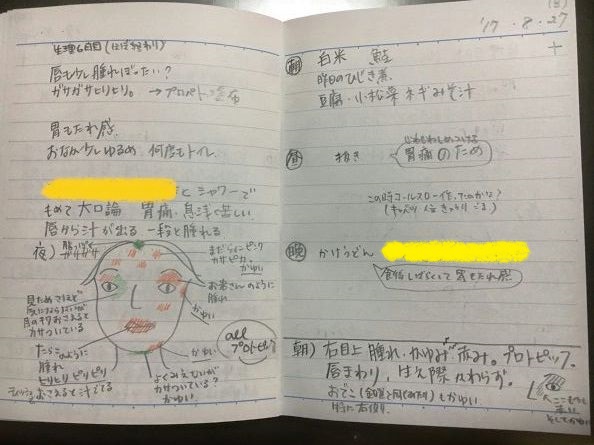 生理6日目(ほぼ終わり)
唇も少し腫れぼったい?
ガサガサヒリヒリ。→プロペト塗布
胃もたれ感
おなか少しゆるめ 何度もトイレ
とシャワーで
もめて大口論 胃痛・息浅く苦しい
唇から汁が出る 一段と腫れる
夜)
まだらにピンク
カサピカ。
かゆい
お岩さんのように
腫れ
かゆい
見ため
カサついている
たらこのように
腫れ
ヒリヒリピリピリ
おさえると汁でてる
かゆい
よくみえないが
カサついている?
かゆい
all
プロトピック
'17・8・27
(日)
朝 白米 鮭
昨日のひじき煮
豆腐・小松菜 ネギみそ汁
昼 抜き
胃痛のため
この時コールスロー作ってたのかな?
晩 かけうどん
食後しばらくして胃もたれ感
朝)右目上 腫れ・かゆみ 赤み。プロトピック。
唇まわり、は久際 かわらず。
おでこ(全額と同じあたり)もかゆい
特に右側
ここもうっすら
赤い
そしてかゆい